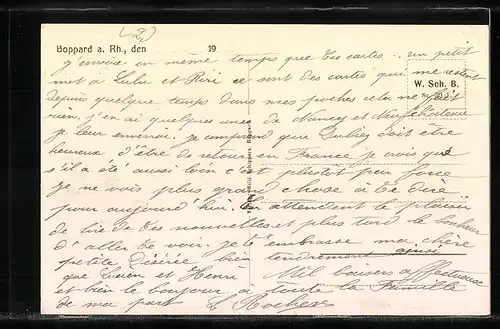 (2)
Boppard a. Rh., den 19
j'envoie en même temps que tes cartes .. un petit
mot à Lulu et Riri ce sont des cartes qui me restent
W. Sch. B.
depuis quelque temps dans mes poches cela ne fait
rien, j'en ai quelques unes de Nancy et Neufchateau
je leur enverrai. je comprend que doit être
heureux d'être de retour en France je crois que
s'il a été aussi loin c'est plutôt par force
je ne vois plus grand chose à te dire
pour aujourd'hui. En attendent le plaisir
de lire de tes nouvelles et plus tard le bonheur
d'aller te voir. je t'embrasse ma chère
petite Désirée bien tendrement ainsi
que Lucien et Henri Mil baisers affectueux
et bien le bonjour à toute la Famille
de ma part L Rocher